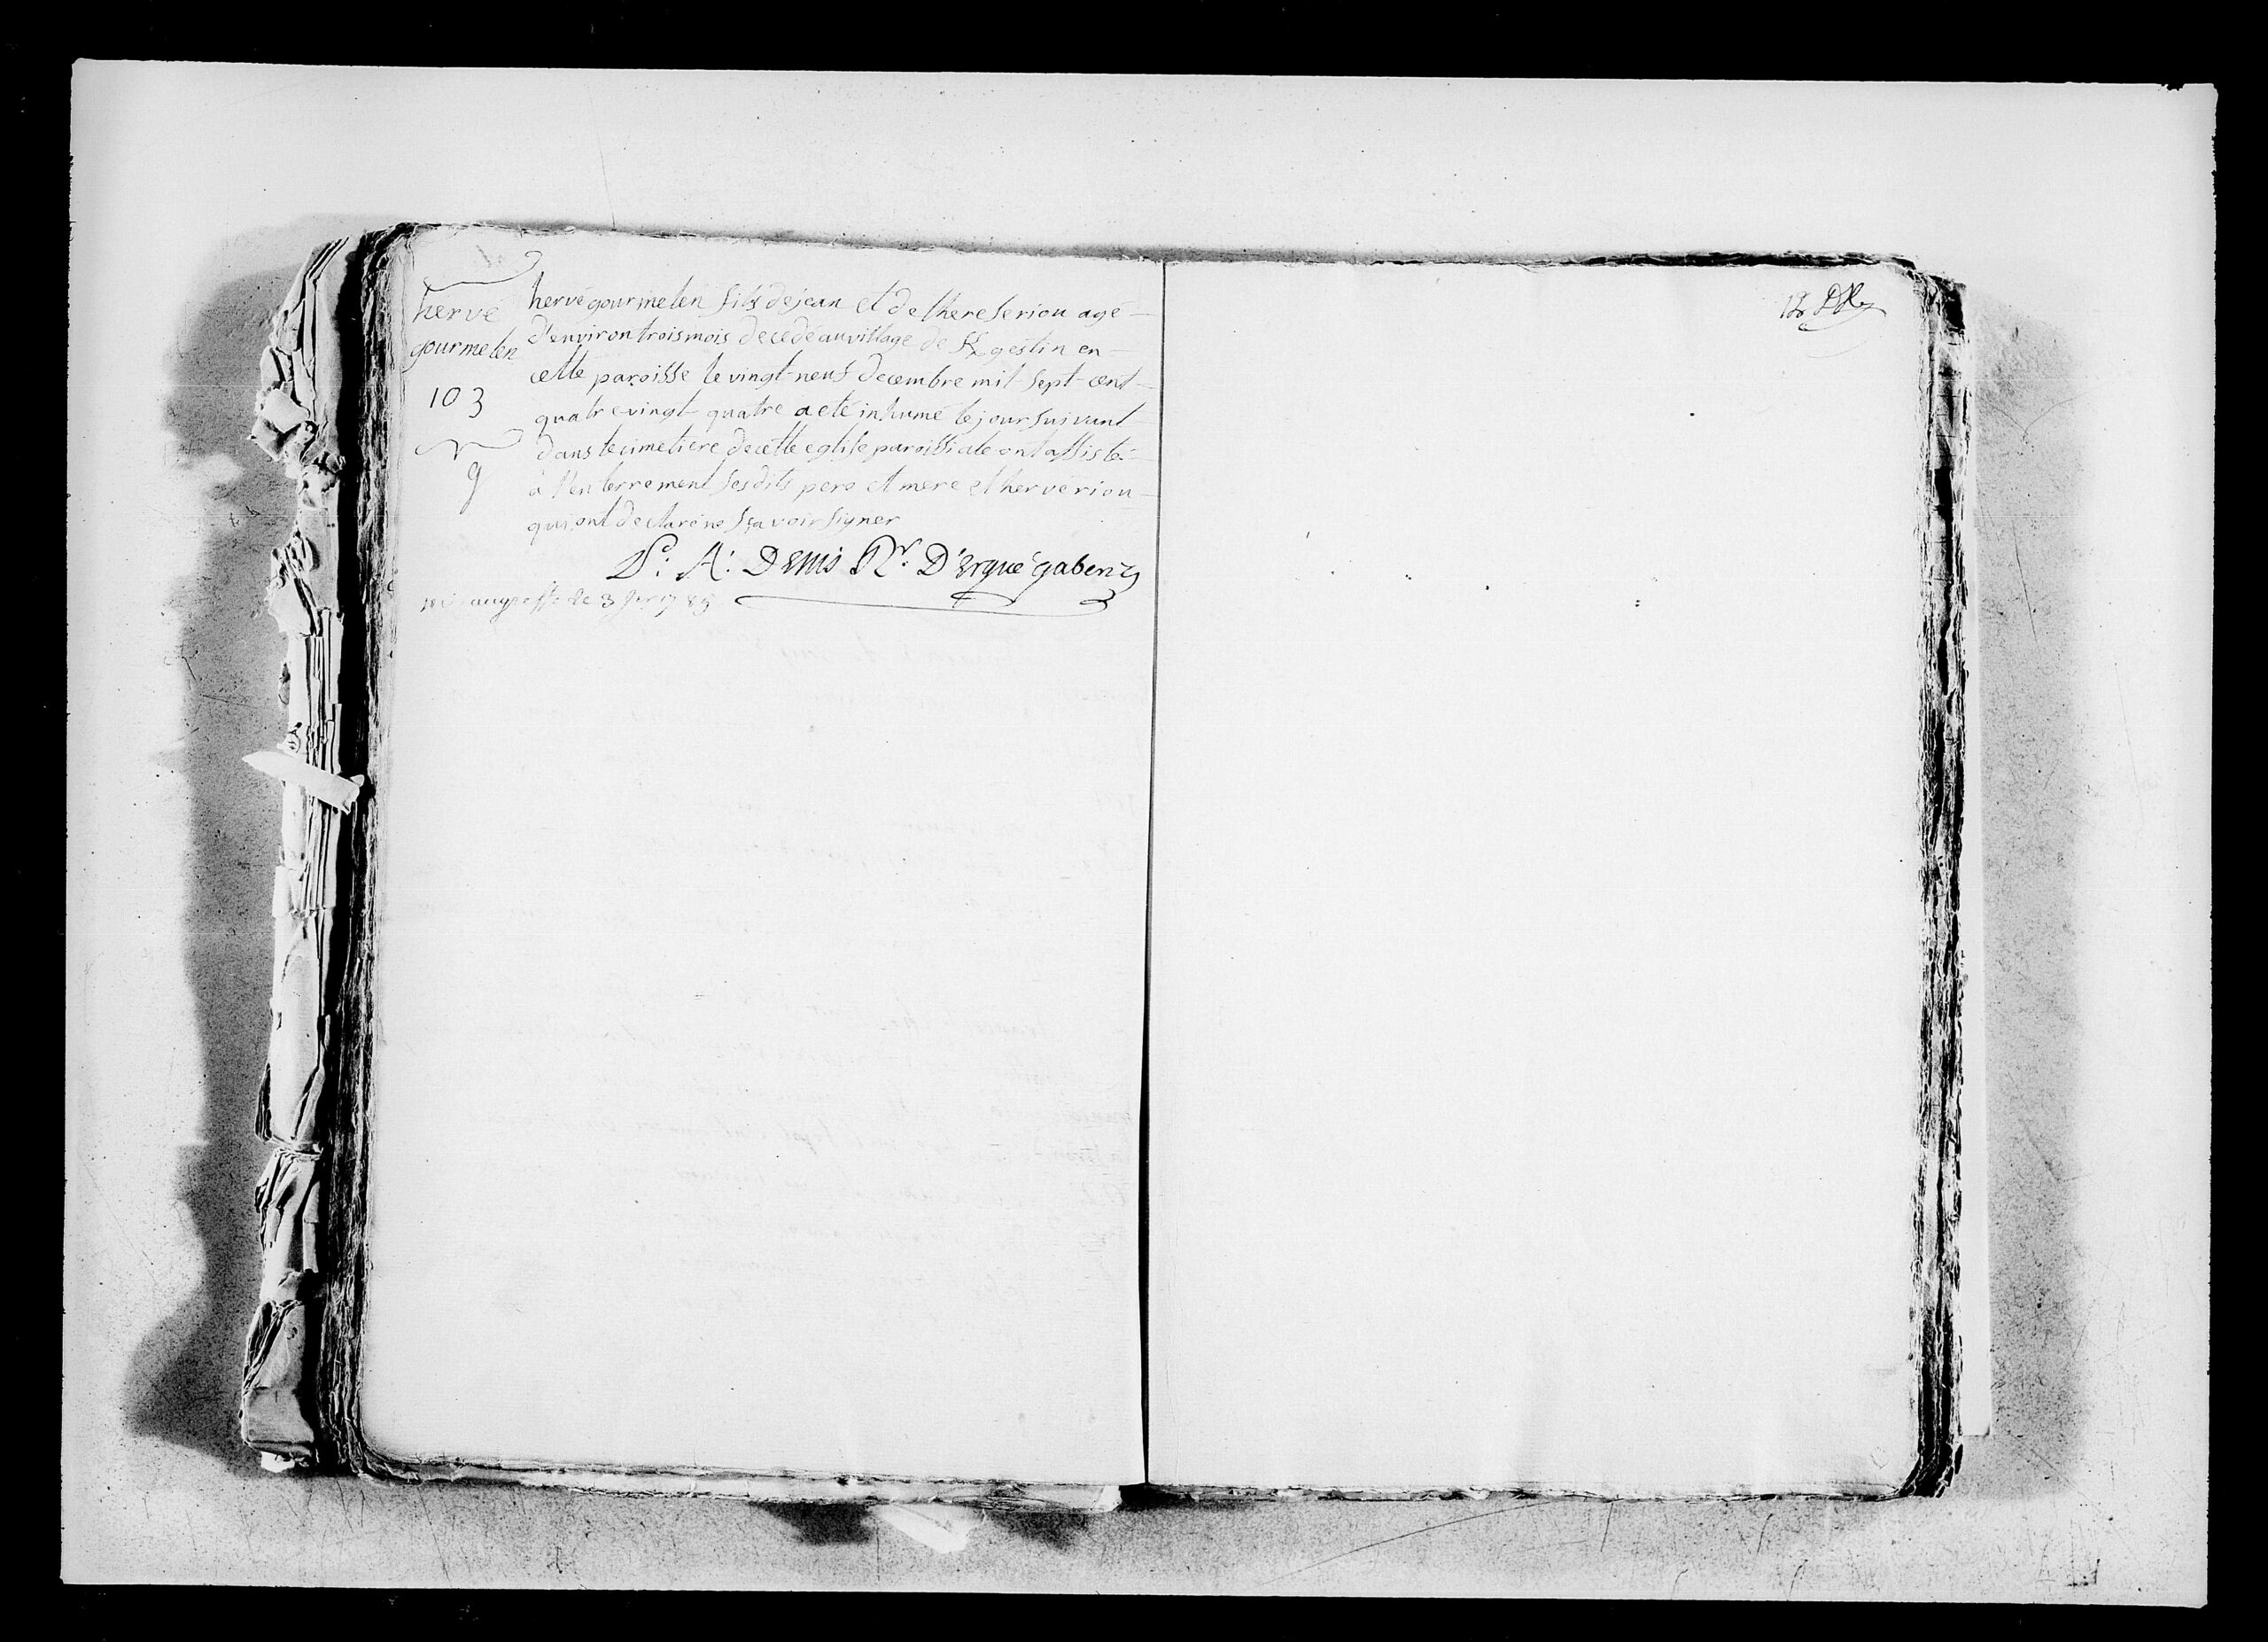 hervé
gourmelen
103
9
hervé gourmelen fils de jean et de therese riou agé
d'environ trois mois decedé au village de Kgestin en
cette paroisse le vingt-neuf decembre mil-sept-cent-
quatre vingt quatre a eté inhumé le jour suivant
dans le cimetiere de cette eglise paroissiale ont assisté
à l'enterrement ses dits pere et mere et hervé riou
qui ont declaré ne sçavoir signer
A: Denis Rr. D'ergué gaberic
au greffe le 3 1785